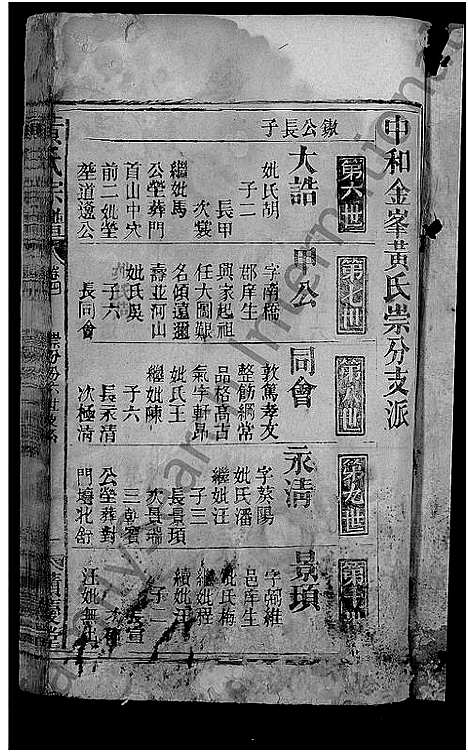 中和金峯黃氏崇分支派
第六世
鏾公長子
大誥
妣氏胡
子二
長甲
次裳
繼妣馬
公塋葬門
首山中穴
前二妣塋
塋道邊公
第七世
甲公
字南橋
邵庠生
興家起祖
任大圖艱
名傾遠邇
壽亚河山
妣氏吳
子六
長同會
第八世
同會
敦篤孝友
整飭綱常
品格高古
氣宇軒昂
妣氏王
繼妣陳
子六
長永清
次極清
第九世
永清
字葵陽
妣氏潘
繼妣汪
子三
長景頊
次景瑞
三朝賓
公塋葬對
門墻北斜
第十世
景頊
邑庠生
妣氏梅
繼妣程
續妣汪
子二
汪妣無出
黃氏宗譜
卷四
積慶堂